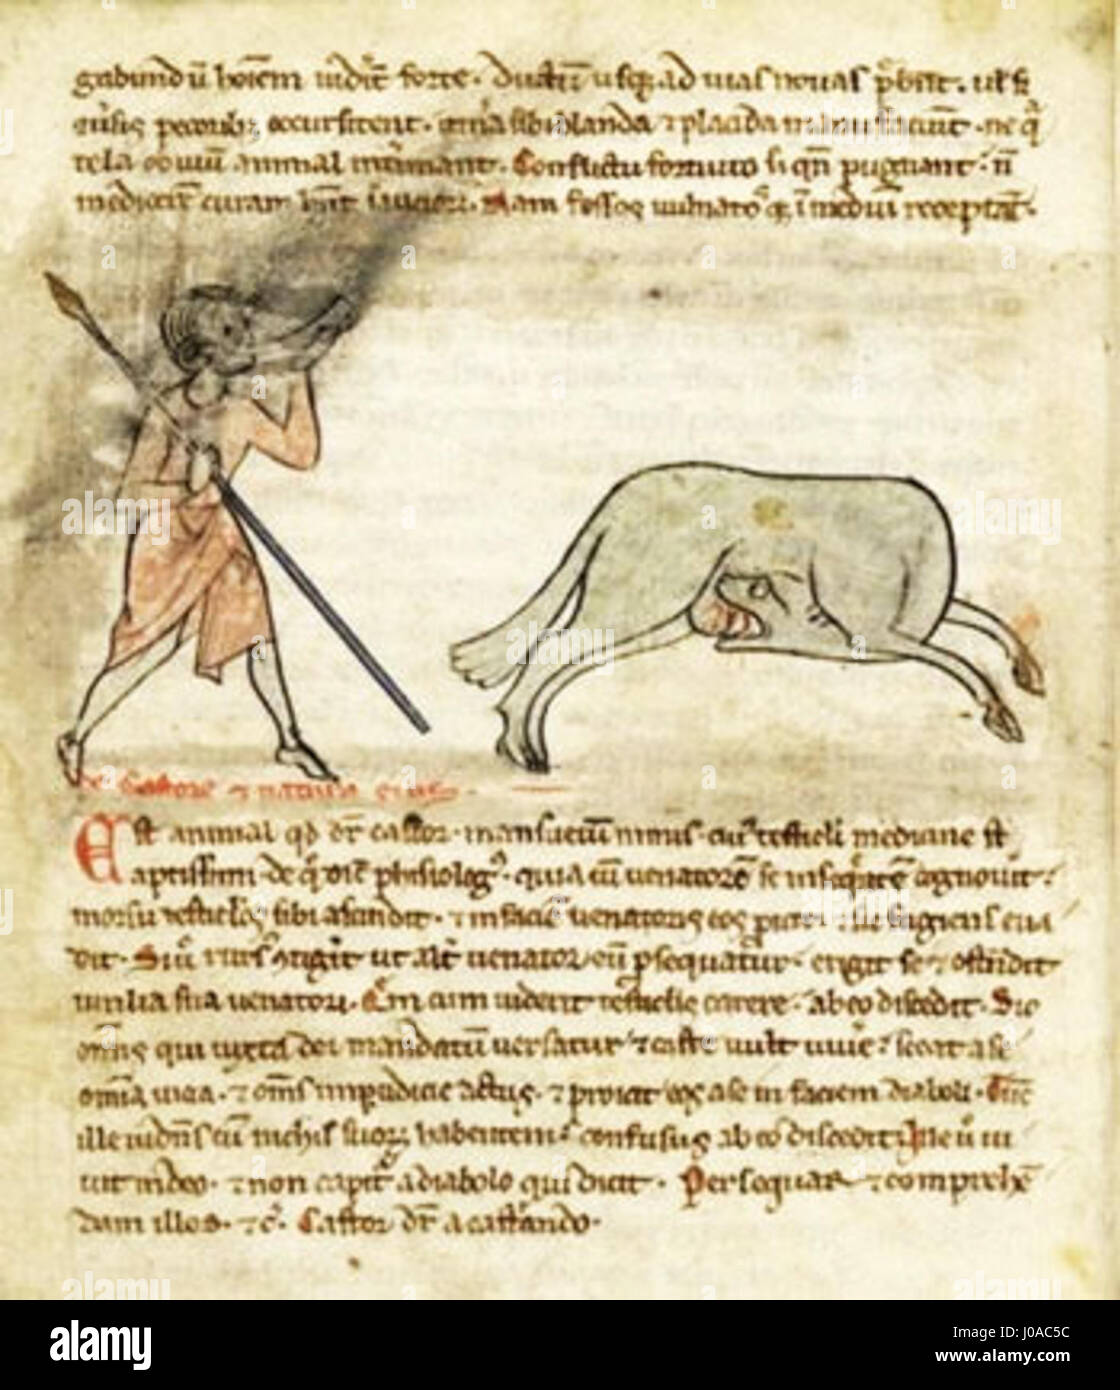 gabundū hoīem uid̄it forte. ductū usq; ad uias notas p̄bent. uł si
ensis pecorib; occursitent. etia sibi blanda & placida manu faciunt. ne q̄
tela obuiū animal intimant. Conflictu fortuito si qn̄ pugnant. n̄
mediocrē curam hn̄t saucior̄. Nam fessos uulnatosq; ī mediū receptant.
De castore & natura eius.
Est animal qd̄ dr̄ castor. mansuetum nimis. cui' testiculi medicine st̄
aptissimi de q̄ dicit physiolog'. quia cū uenatorē se inseq̄ntē cognouit.
morsu testiclos sibi abscidit. & in faciē uenatoris eos proicit. & sic fugiens eua
dit. Si u' rursus contigit ut alt' uenator eū p̄sequatur. erigit se & ostendit
uirilia sua uenatori. Qui cum uiderit testiclis carere. ab eo discedit. Sic
omnis qui iuxta dei mandatū uersatur & caste uult uiuere. secat a se
omīa uicia. & om̄s impudicicie actus. & proicit eos a se in faciem diaboli. Tunc
ille uidens eū nichil suor habentem. confusus ab eo discedit. Ille u' ui
uit in deo. & non capit' a diabolo qui dicit. Persequar & comprehē
dam illos. &c̄. Castor dr̄ a castrando.
alamy
a
alamy stock photo
J0AC5C
www.alamy.com